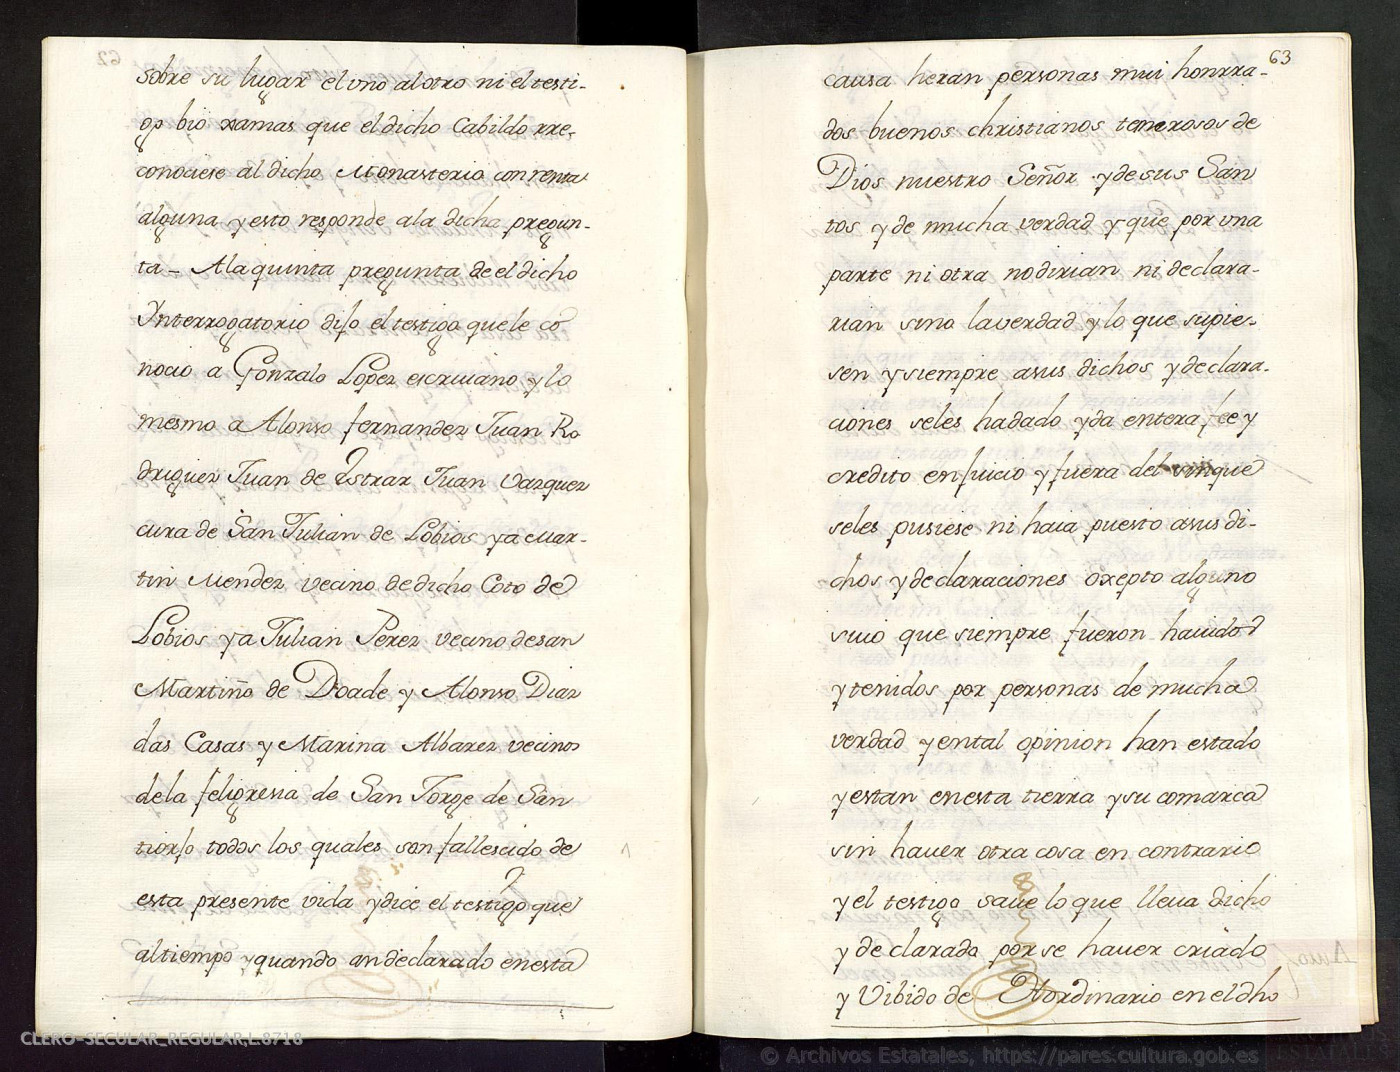 sobre su lugar el vno al otro ni el testi-
go bio xamas que el dicho Cabildo rre-
conociese al dicho Monasterio con renta
alguna y esto responde ala dicha pregun-
ta - Ala quinta pregunta de el dicho
Ynterrogatorio dijo el testigo que le co
nocio a Gonzalo Lopez escriuano y lo
mesmo a Alonso fernandez Juan Ro
driguez Juan de Estrar Juan Vazquez
cura de San Julian de Lobios ya Mar-
tin Mendez vecino de dicho Coto de
Lobios ya Julian Perez vecino de san
Martiño de Doade y Alonso Diaz
das Casas y Marina Albarez vecinos
de la feligresia de San Jorge de San
tiorjo todos los quales son fallescido de
esta presente vida y dice el testigo que
al tiempo y quando an declarado en esta
63
causa heran personas mui honrra-
dos buenos christianos temerosos de
Dios nuestro Señor y de sus San
tos y de mucha verdad y que por vna
parte ni otra no dirian ni declara-
rian sino la verdad y lo que supie-
sen y siempre asus dichos y declara-
ciones seles ha dado y da entera fee y
credito en juicio y fuera del sin que
seles pusiese ni haia puesto asus di-
chos y declaraciones oxepto alguno
sino que siempre fueron hauidos
y tenidos por personas de mucha
verdad y en tal opinion han estado
y estan en esta tierra y su comarca
sin hauer otra cosa en contrario
y el testigo saue lo que lleua dicho
y declarado por se hauer criado
y Vibido de Hordinario en el dho
CLERO-SECULAR_REGULAR,L.8718
© Archivos Estatales, https://pares.cultura.gob.es